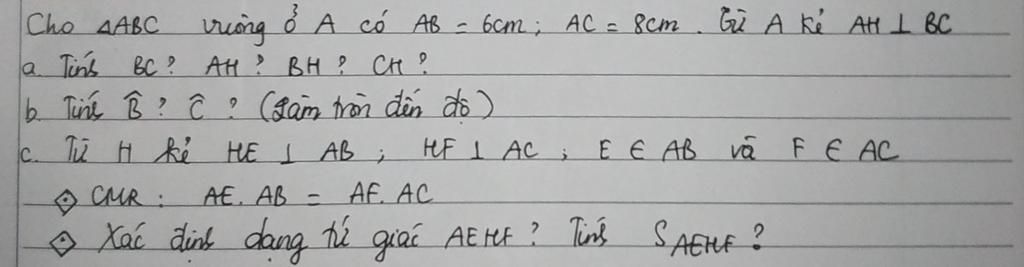 Cho △ABC vuông ở A có AB = 6cm; AC = 8cm. Từ A kẻ AH ⊥ BC
a. Tính BC? AH? BH? CH?
b. Tính B̂? Ĉ? (Làm tròn đến độ)
c. Từ H kẻ HE ⊥ AB; HF ⊥ AC; E ∈ AB và F ∈ AC
CMR: AE.AB = AF.AC
Xác định dạng tứ giác AEHF? Tính S AEHF?